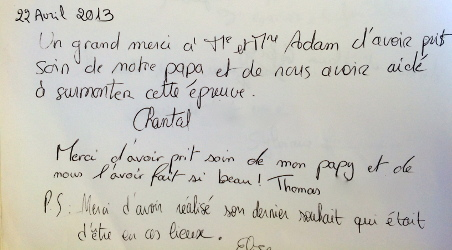 22 Avril 2013
Un grand merci à Mr et Mme Adam d'avoir prit
soin de notre papa et de nous avoir aidé
à surmonter cette épreuve.
Chantal
Merci d'avoir prit soin de mon papy et de
nous l'avoir fait si beau! Thomas
PS: Merci d'avoir réalisé son dernier souhait qui était
d'être en ces lieux.